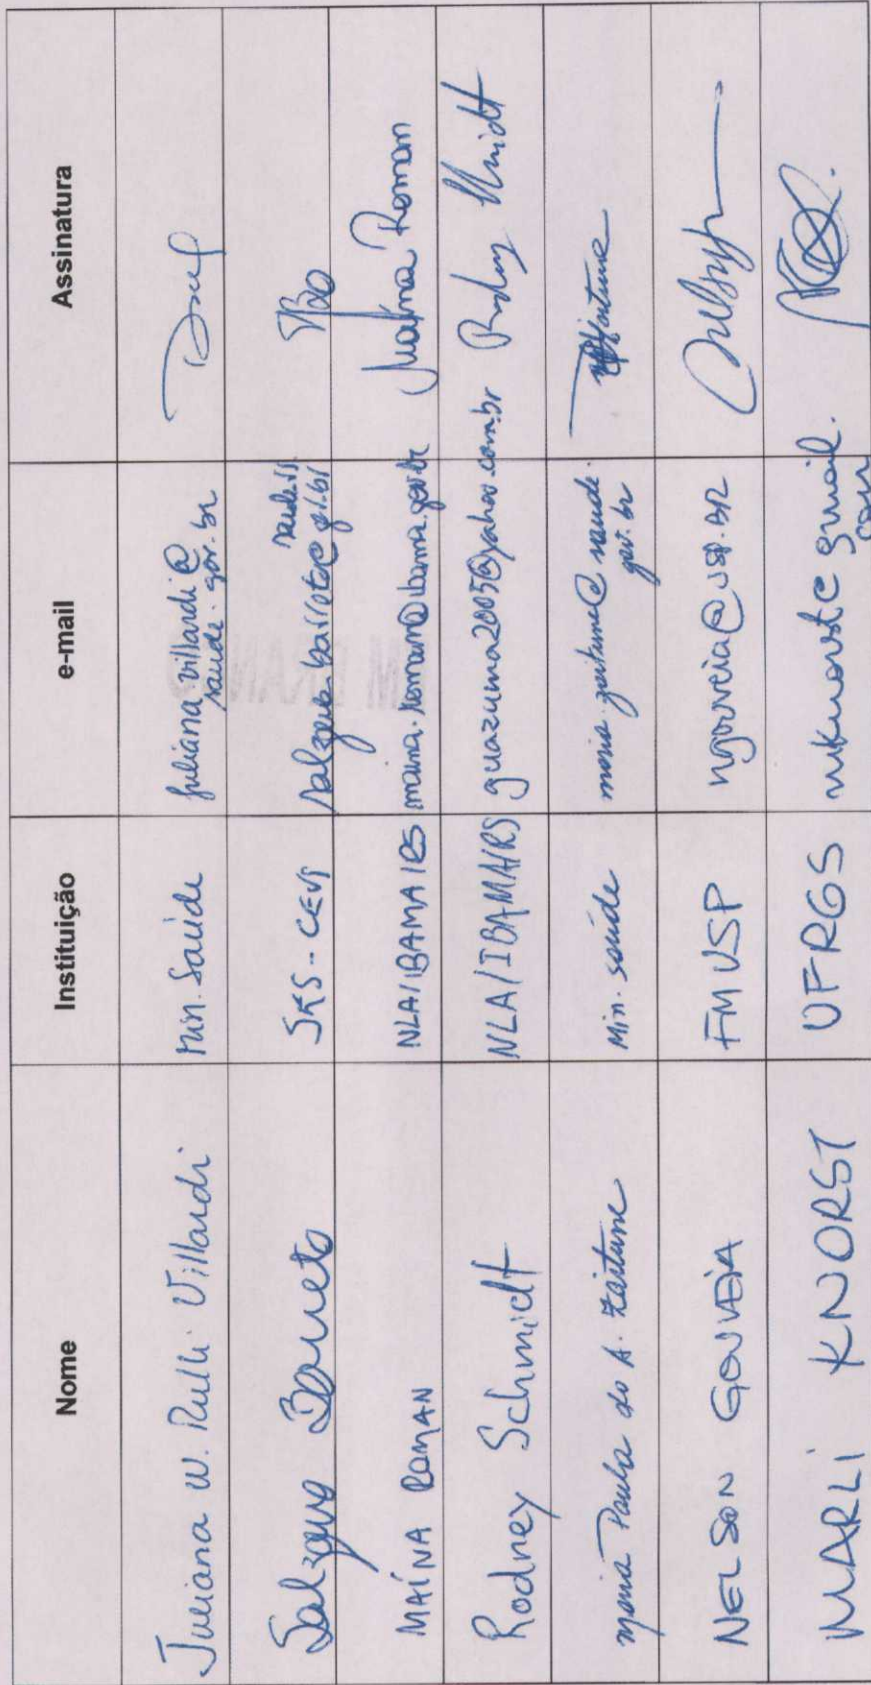 Nome Instituição e-mail Assinatura
Juliana W. Rulli Villardi Min. Saúde juliana.villardi@
saude.gov.br
Salzano Barreto SES-CEVS salzano-barreto@
saude.rs.gov.br
MAÍNA ROMAN NLA/IBAMA/RS maina.roman@ibama.gov.br Maína Roman
Rodney Schmidt NLA/IBAMA/RS guazuma2005@yahoo.com.br Rodney Schmidt
Maria Paula do A. Zaitune Min. saúde maria.zaitune@saude.
gov.br
NELSON GOUVEIA FMUSP ngouveia@usp.br
MARLI KNORST UFRGS mknorst@gmail.
com